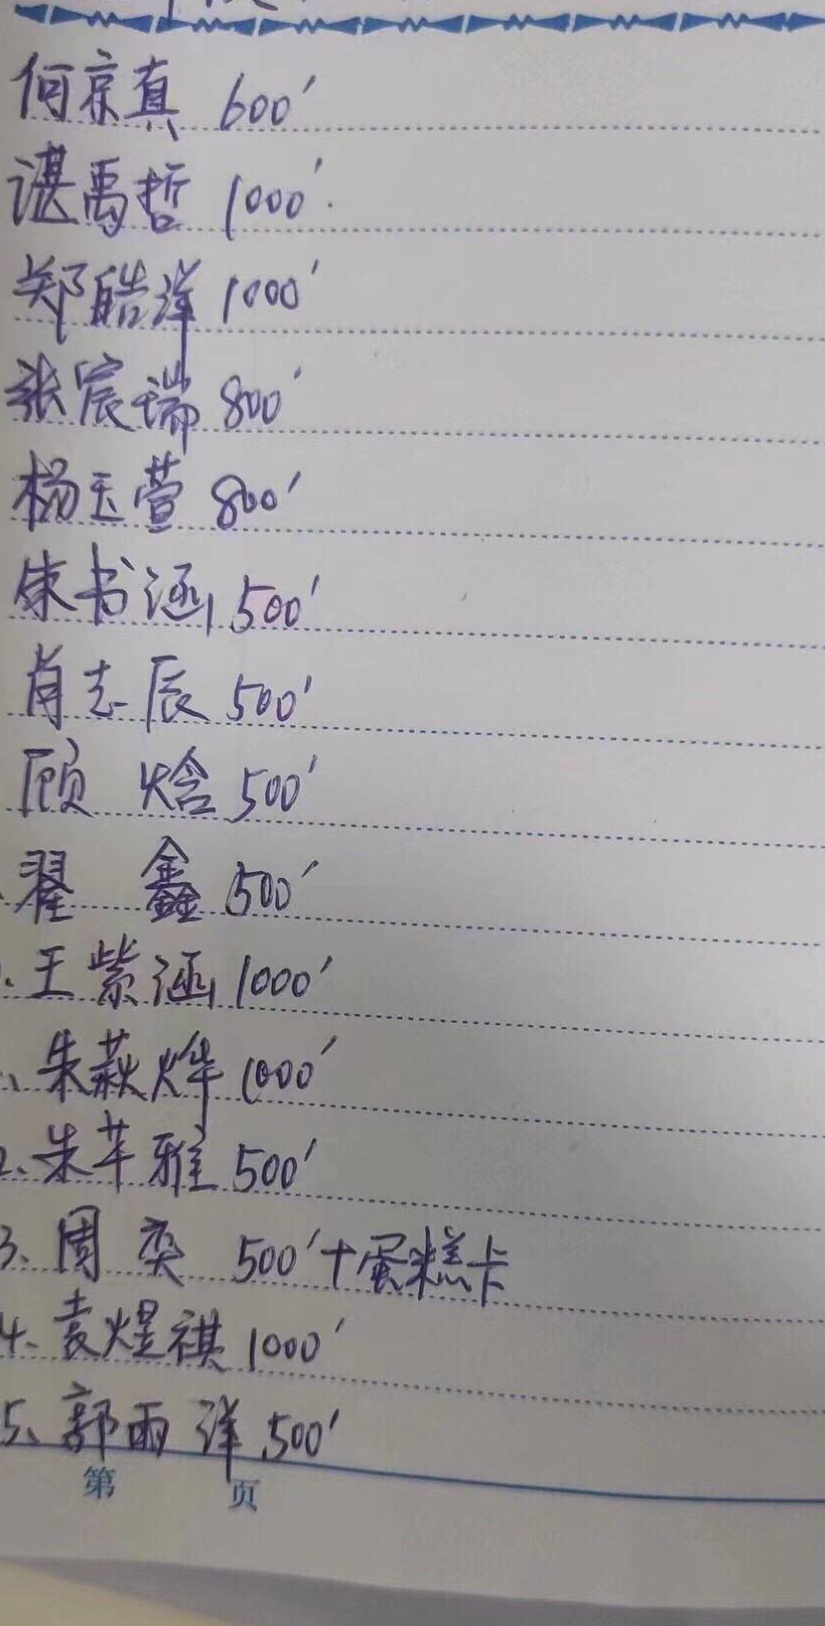 何京真 600'
谌禹哲 1000'
郑皓洋 1000'
张宸瑞 800'
杨玉萱 800'
朱书涵 500'
肖志辰 500'
顾 焓 500'
翟 鑫 500'
王紫涵 1000'
朱萩烨 1000'
2、朱芊雅 500'
3、周奕 500'+蛋糕卡
4、袁煜祺 1000'
5、郭雨洋 500'
第 页